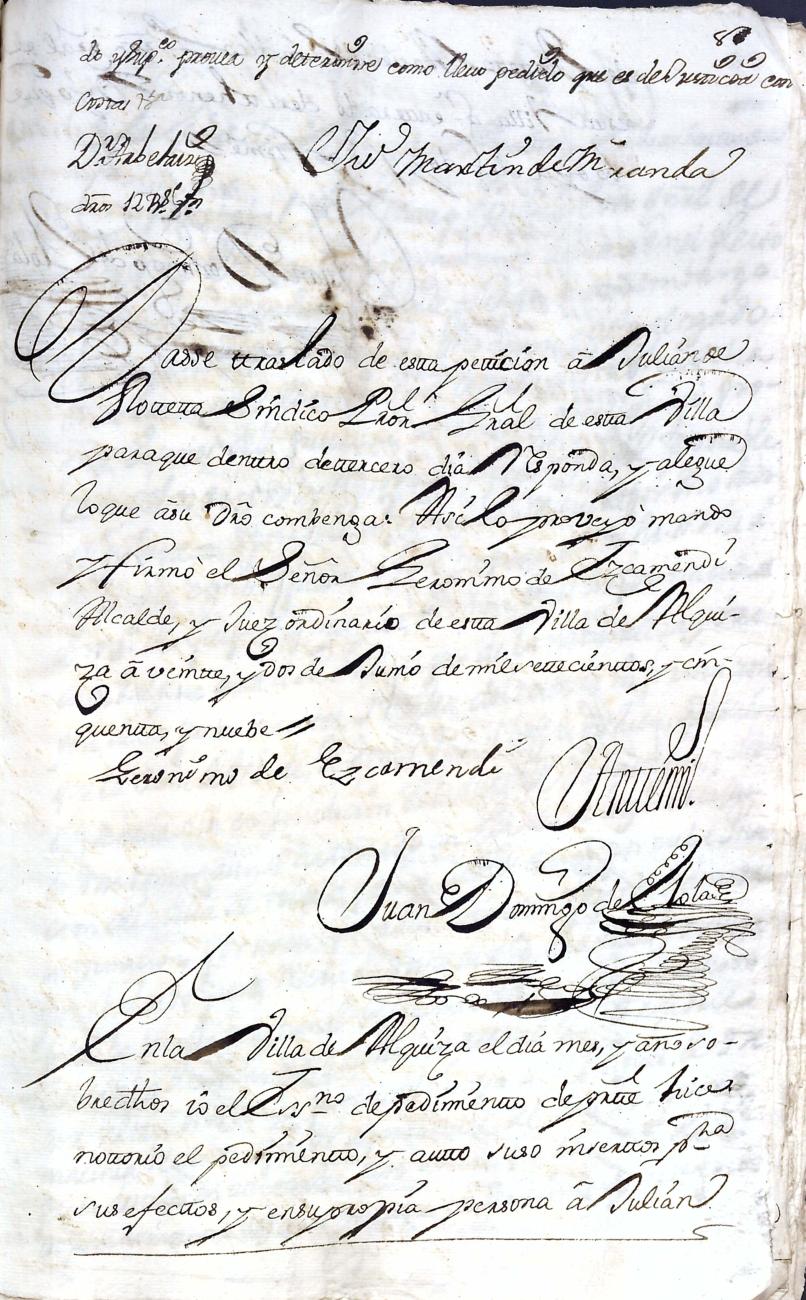 8
do y sup.co provea y determine como llevo pedido que es de Justicia con
Costas &
D.r Arbelaiz
Martin de Miranda
dros 12 R.s
Dasse ttraslado de estta petticion â Julian de
Ollottetta Sindico Pror Gral de estta Villa
paraque denttro de ttercero dia Responda, y alegue
loque âsu Dro combenga: Asi lo proveyò mando
y firmò el Señor Geronimo de Ezcamendi
Alcalde, y Juez ordinario de estta Villa de Alqui-
za â veintte, y dos de Junio de mil settecienttos, y cin-
quentta, y nuebe //
Geronimo de Ezcamendi
Anttemi
Juan Domingo de
En la Villa de Alquiza el dia mes, y año so-
bredthos io el Essno de pedimentto de partte hice
nottorio el pedimentto, y autto suso inserttos pha
sus efecttos, y ensu propia persona â Julian